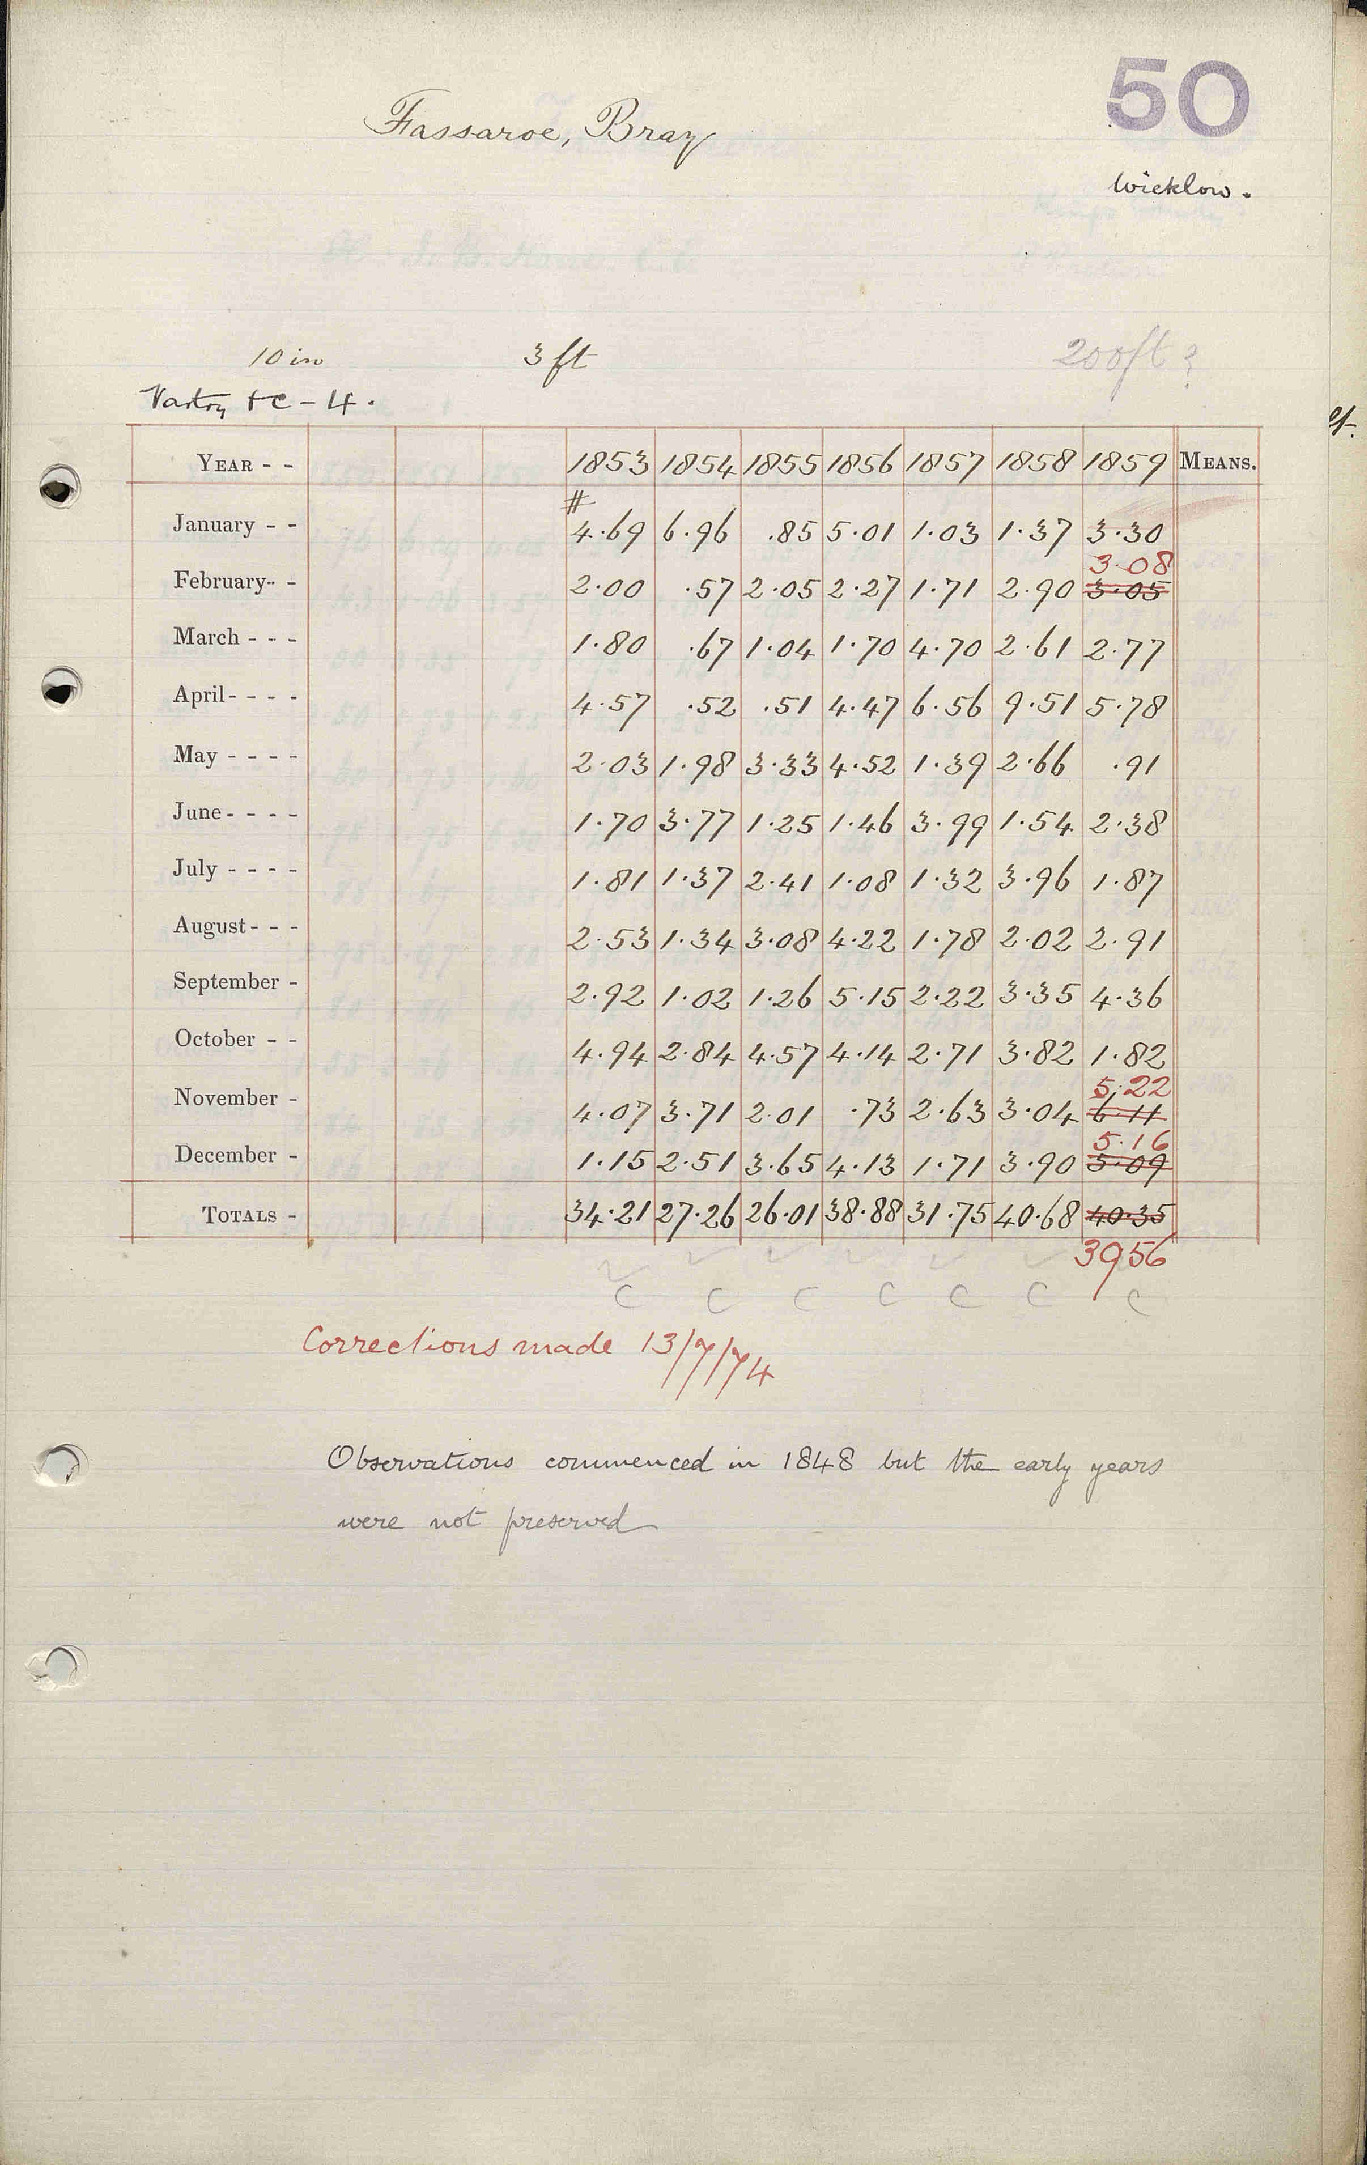 50
Fassaroe, Bray
Wicklow.
10 in 3 ft 200ft ?
Vartry + C - 4.
YEAR - - 1853 1854 1855 1856 1857 1858 1859 MEANS.
#
January - - 4.69 6.96 .85 5.01 1.03 1.37 3.30
3.08
February - - 2.00 .57 2.05 2.27 1.71 2.90 3.05
March - - - 1.80 .67 1.04 1.70 4.70 2.61 2.77
April - - - - 4.57 .52 .51 4.47 6.56 9.51 5.78
May - - - - 2.03 1.98 3.33 4.52 1.39 2.66 .91
June - - - - 1.70 3.77 1.25 1.46 3.99 1.54 2.38
July - - - - 1.81 1.37 2.41 1.08 1.32 3.96 1.87
August - - - 2.53 1.34 3.08 4.22 1.78 2.02 2.91
September - 2.92 1.02 1.26 5.15 2.22 3.35 4.36
October - - 4.94 2.84 4.57 4.14 2.71 3.82 1.82
5.22
November - 4.07 3.71 2.01 .73 2.63 3.04 6.11
5.16
December - 1.15 2.51 3.65 4.13 1.71 3.90 5.09
TOTALS - 34.21 27.26 26.01 38.88 31.75 40.68 40.35
39.56
C C C C C C C
Corrections made 13/7/74
Observations commenced in 1848 but the early years
were not preserved